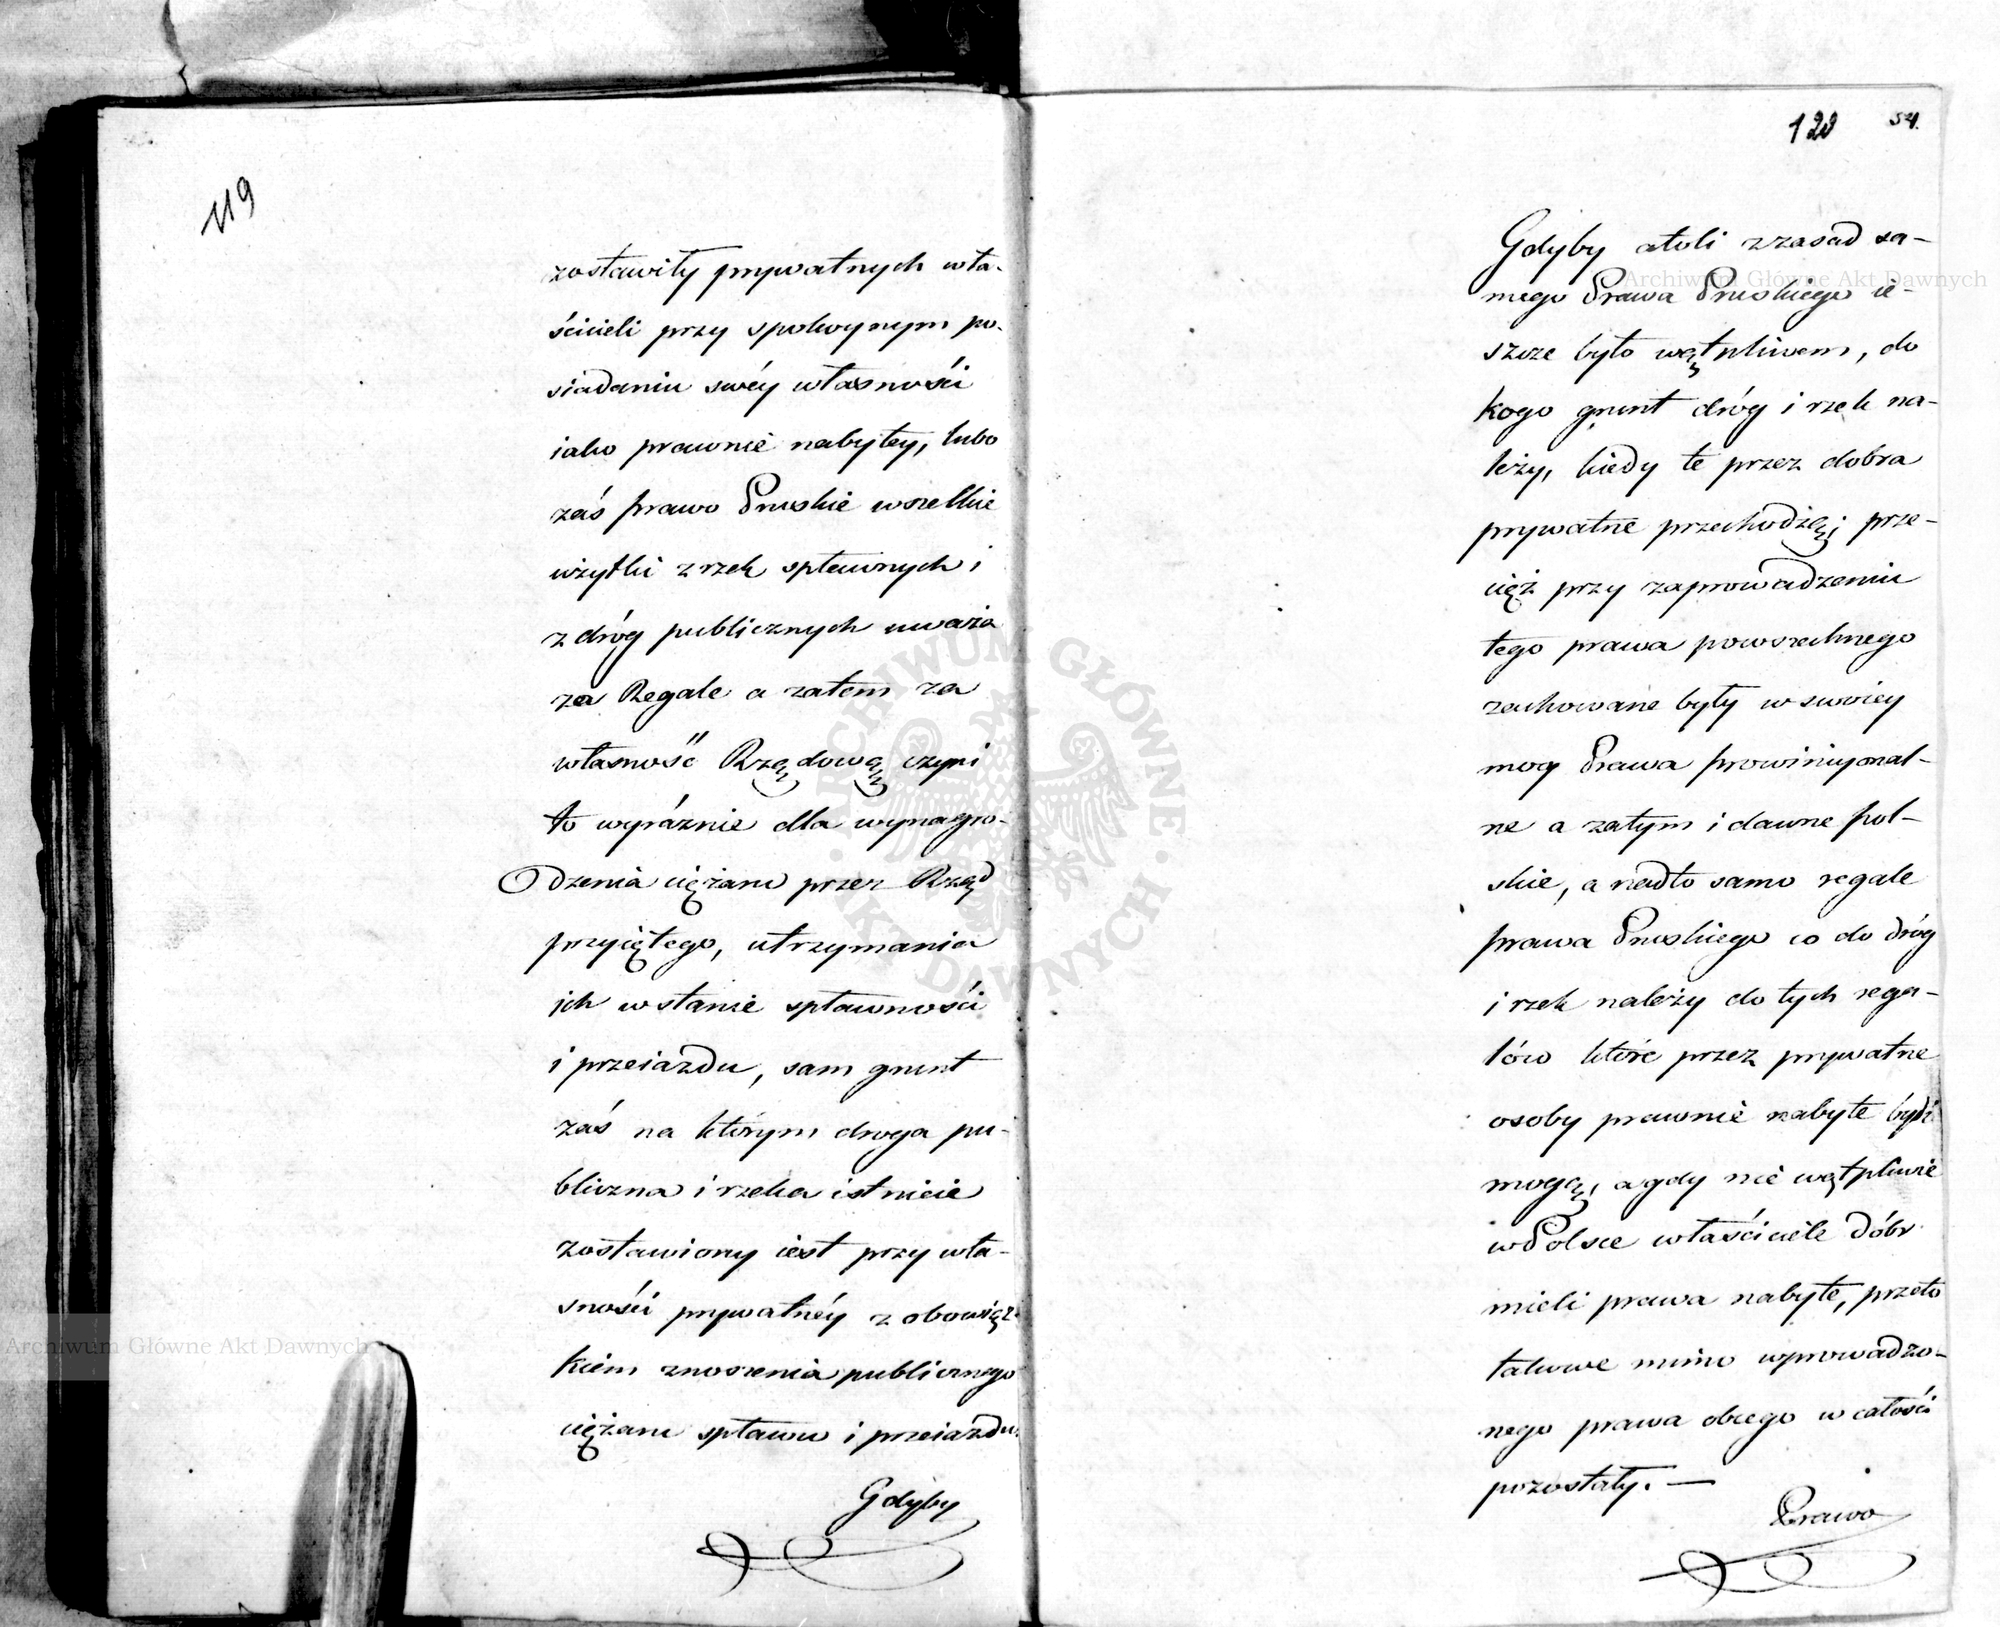 119
zostawiły prywatnych wła-
ścicieli przy spokoynym po-
siadaniu swéy własności
iako prawnie nabytey, lubo
zaś prawo Pruskie wszelkie
użytki z rzek spławnych i
z dróg publicznych uważa
za Regale a zatem za
własność Rządową czyni
to wyráznie dla wynagro-
dzenia ciężaru przez Rząd
przyiętego, utrzymania
ich w stanie spławności
i przeiazdu, sam grunt
zaś na którym droga pu-
bliczna i rzeka istnieie
zostawiony iest przy wła-
sności prywatnéy z obowiąz-
kiem znoszenia publicznego
ciężaru spławu i przeiazdu.
Gdyby
120 54.
Gdyby atoli z zasad sa-
mego Prawa Pruskiego ie-
szcze było wątpliwem, do
kogo grunt dróg i rzek na-
leży, kiedy te przez dobra
prywatne przechodzą; prze-
cięż przy zaprowadzeniu
tego prawa powszechnego
zachowane były w swoiey
mocy Prawa prowincyonal-
ne a zatym i dawne pol-
skie, a nadto samo regale
prawa Pruskiego co do dróg
i rzek należy do tych rega-
lów które przez prywatne
osoby prawnie nabyte bydź
mogą, a gdy nie wątpliwie
w Polsce właściciele dóbr
mieli prawa nabyte, przeto
takowe mimo wprowadzo-
nego prawa obcego w całości
pozostały. —
Prawo
Archiwum Główne Akt Dawnych
Archiwum Główne Akt Dawnych
ARCHIWUM GŁÓWNE · AKT DAWNYCH ·